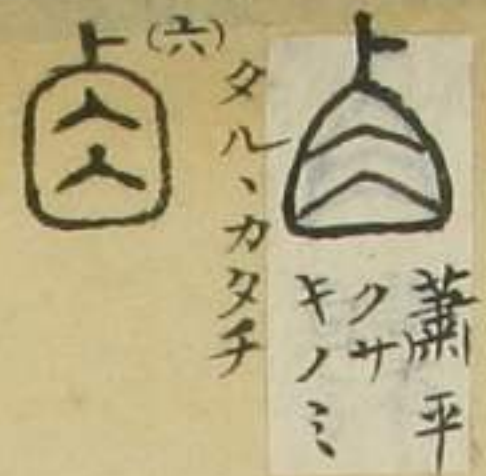 蕭平
クサ
キノミ
タルヽカタチ
(六)